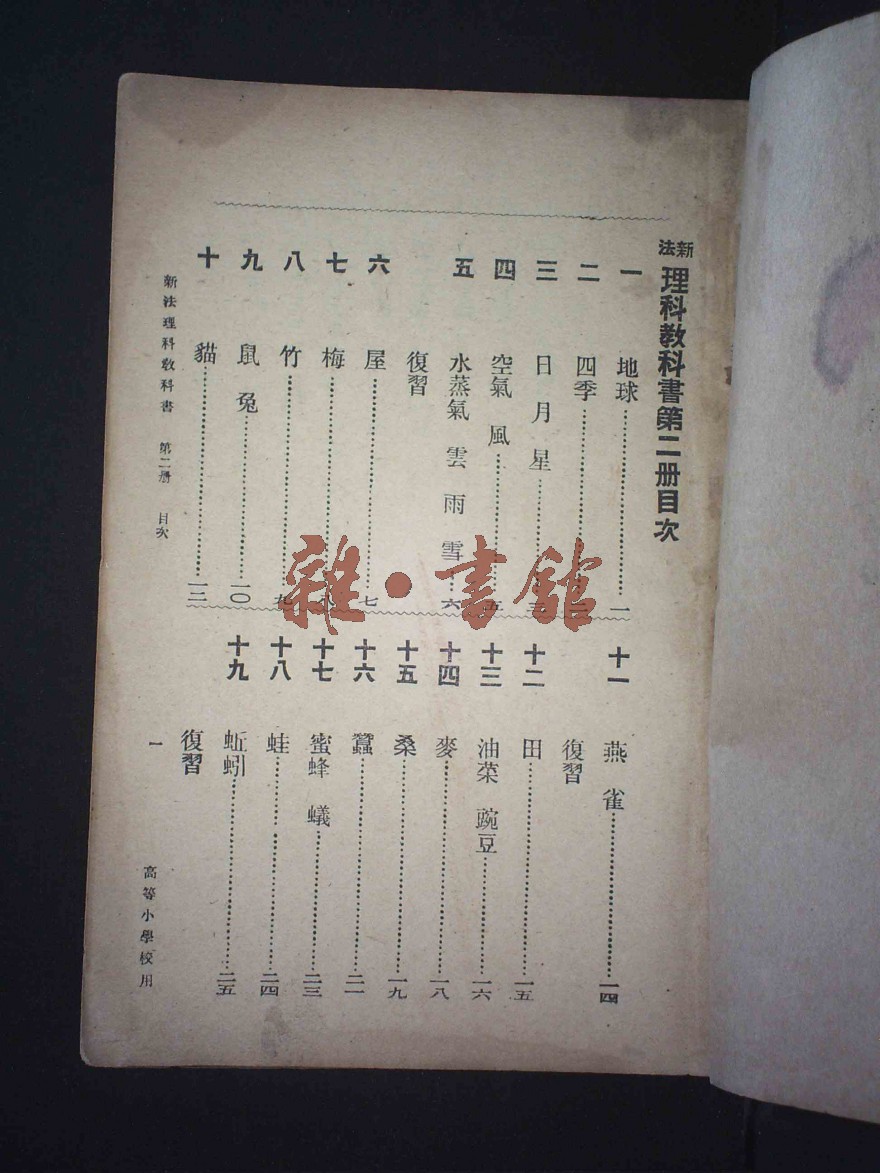 新法理科教科書第二册目次
一 地球 一
二 四季
三 日 月 星 三
四 空氣 風 五
五 水蒸氣 雲 雨 雪 六
復習
六 屋 七
七 梅 八
八 竹 九
九 鼠 兔 一〇
十 貓 一二
十一 燕 雀 一四
復習
十二 田 一五
十三 油菜 豌豆 一六
十四 麥 一八
十五 桑 一九
十六 蠶 二一
十七 蜜蜂 蟻 二三
十八 蛙 二四
十九 蚯蚓 二五
復習
新法理科教科書 第二册 目次
一
高等小學校用
雜·書館